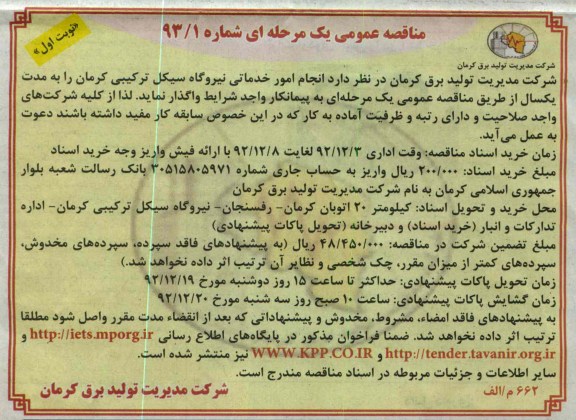 «نوبت اول»
مناقصه عمومی یک مرحله ای شماره ۹۳/۱
شرکت مدیریت تولید برق کرمان
شرکت مدیریت تولید برق کرمان در نظر دارد انجام امور خدماتی نیروگاه سیکل ترکیبی کرمان را به مدت
یکسال از طریق مناقصه عمومی یک مرحله‌ای به پیمانکار واجد شرایط واگذار نماید. لذا از کلیه شرکت‌های
واجد صلاحیت و دارای رتبه و ظرفیت آماده به کار که در این خصوص سابقه کار مفید داشته باشند دعوت
به عمل می‌آید.
زمان خرید اسناد مناقصه: وقت اداری ۹۲/۱۲/۳ لغایت ۹۲/۱۲/۸ با ارائه فیش واریز وجه خرید اسناد
مبلغ خرید اسناد: ۲۰۰/۰۰۰ ریال واریز به حساب جاری شماره ۳۰۵۱۵۸۰۵۹۷۱ بانک رسالت شعبه بلوار
جمهوری اسلامی کرمان به نام شرکت مدیریت تولید برق کرمان
محل خرید و تحویل اسناد: کیلومتر ۲۰ اتوبان کرمان- رفسنجان- نیروگاه سیکل ترکیبی کرمان- اداره
تدارکات و انبار (خرید اسناد) و دبیرخانه (تحویل پاکات پیشنهادی)
مبلغ تضمین شرکت در مناقصه: ۴۸/۴۵۰/۰۰۰ ریال (به پیشنهادهای فاقد سپرده، سپرده‌های مخدوش،
سپرده‌های کمتر از میزان مقرر، چک شخصی و نظایر آن ترتیب اثر داده نخواهد شد.)
زمان تحویل پاکات پیشنهادی: حداکثر تا ساعت ۱۵ روز دوشنبه مورخ ۹۲/۱۲/۱۹
زمان گشایش پاکات پیشنهادی: ساعت ۱۰ صبح روز سه شنبه مورخ ۹۲/۱۲/۲۰
به پیشنهادهای فاقد امضاء، مشروط، مخدوش و پیشنهاداتی که بعد از انقضاء مدت مقرر واصل شود مطلقا
ترتیب اثر داده نخواهد شد. ضمنا فراخوان مذکور در پایگاه‌های اطلاع رسانی http://iets.mporg.ir و
http://tender.tavanir.org.ir و WWW.KPP.CO.IR نیز منتشر شده است.
سایر اطلاعات و جزئیات مربوطه در اسناد مناقصه مندرج است.
۶۶۲ م/الف
شرکت مدیریت تولید برق کرمان